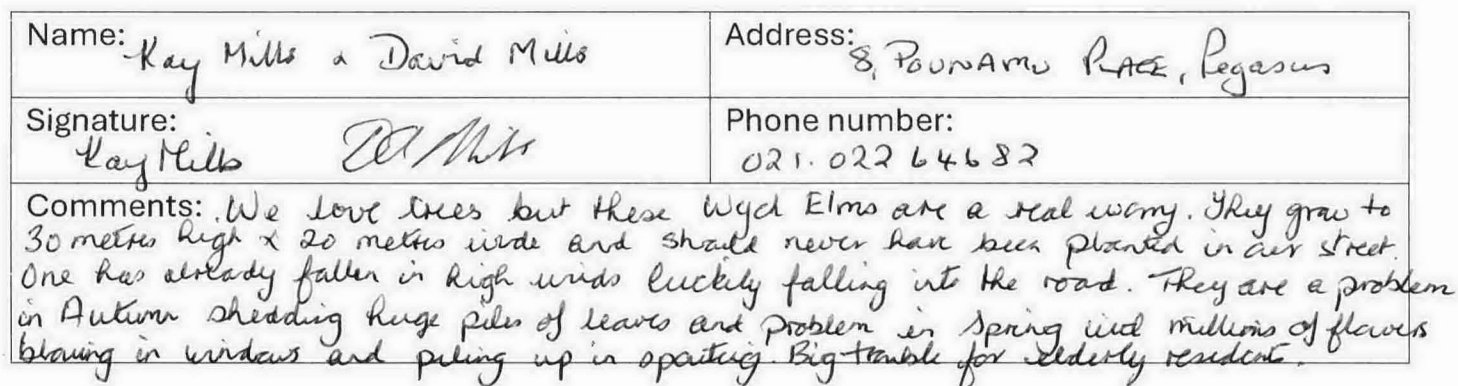 Name: Kay Mills & David Mills
Address: 8, POUNAMU PLACE, Pegasus
Signature: Kay Mills D A Mills
Phone number: 021.022 64682
Comments: We love trees but these Wych Elms are a real worry. They grow to
30 metres high x 20 metres wide and should never have been planted in our street.
One has already fallen in high winds luckily falling into the road. They are a problem
in Autumn shedding huge piles of leaves and problem in Spring with millions of flowers
blowing in windows and piling up in spouting. Big trouble for elderly residents.